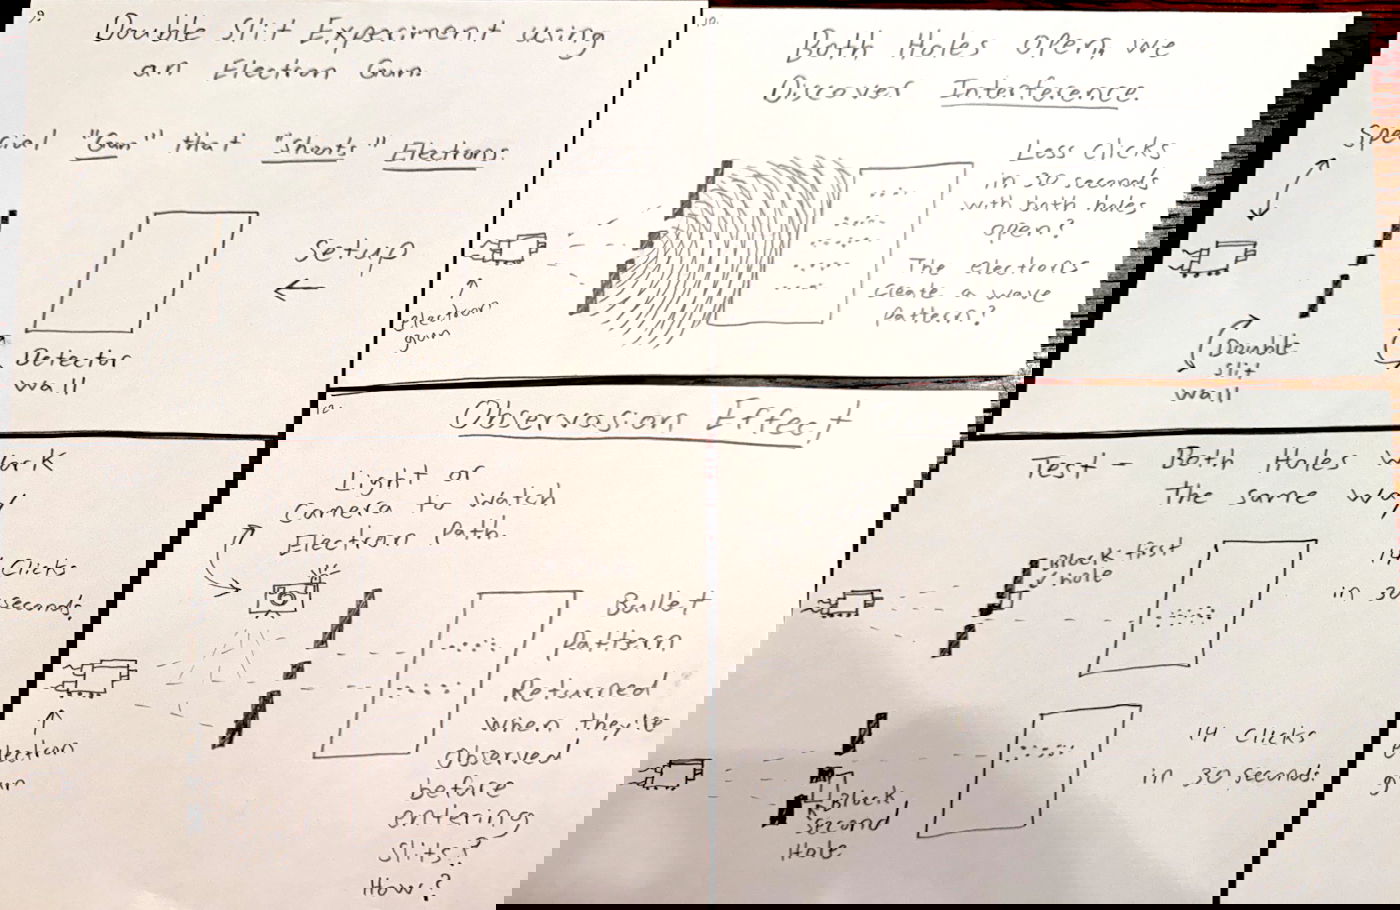 Double Slit Experiment using
an Electron Gun
"Gun" that "Shoots" Electrons.
Setup
Detector
wall
Both Holes Open, we
Discover Interference.
Less Clicks
in 30 seconds
with both holes
open?
The electrons
create a wave
pattern?
Electron
gun
Double
Slit
wall
Observasion Effect
Light or
Camera to watch
Electron Path.
Clicks
in 30
seconds.
Bullet
Pattern
Returned
when they're
Observed
before
entering
Slits?
How?
gun
Test - Both Holes
The same
Block first
hole
14 Clicks
in 30 Seconds
Block
Second
Hole